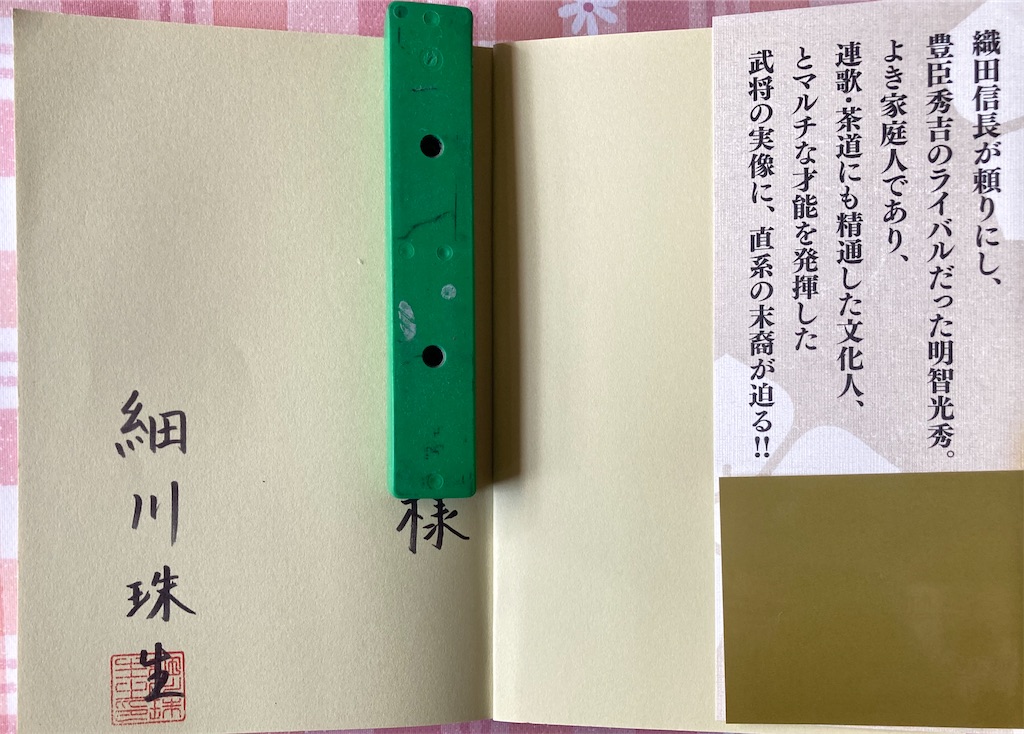 織田信長が頼りにし、
豊臣秀吉のライバルだった明智光秀。
よき家庭人であり、
連歌・茶道にも精通した文化人、
とマルチな才能を発揮した
武将の実像に、直系の末裔が迫る!!
様
細川珠生